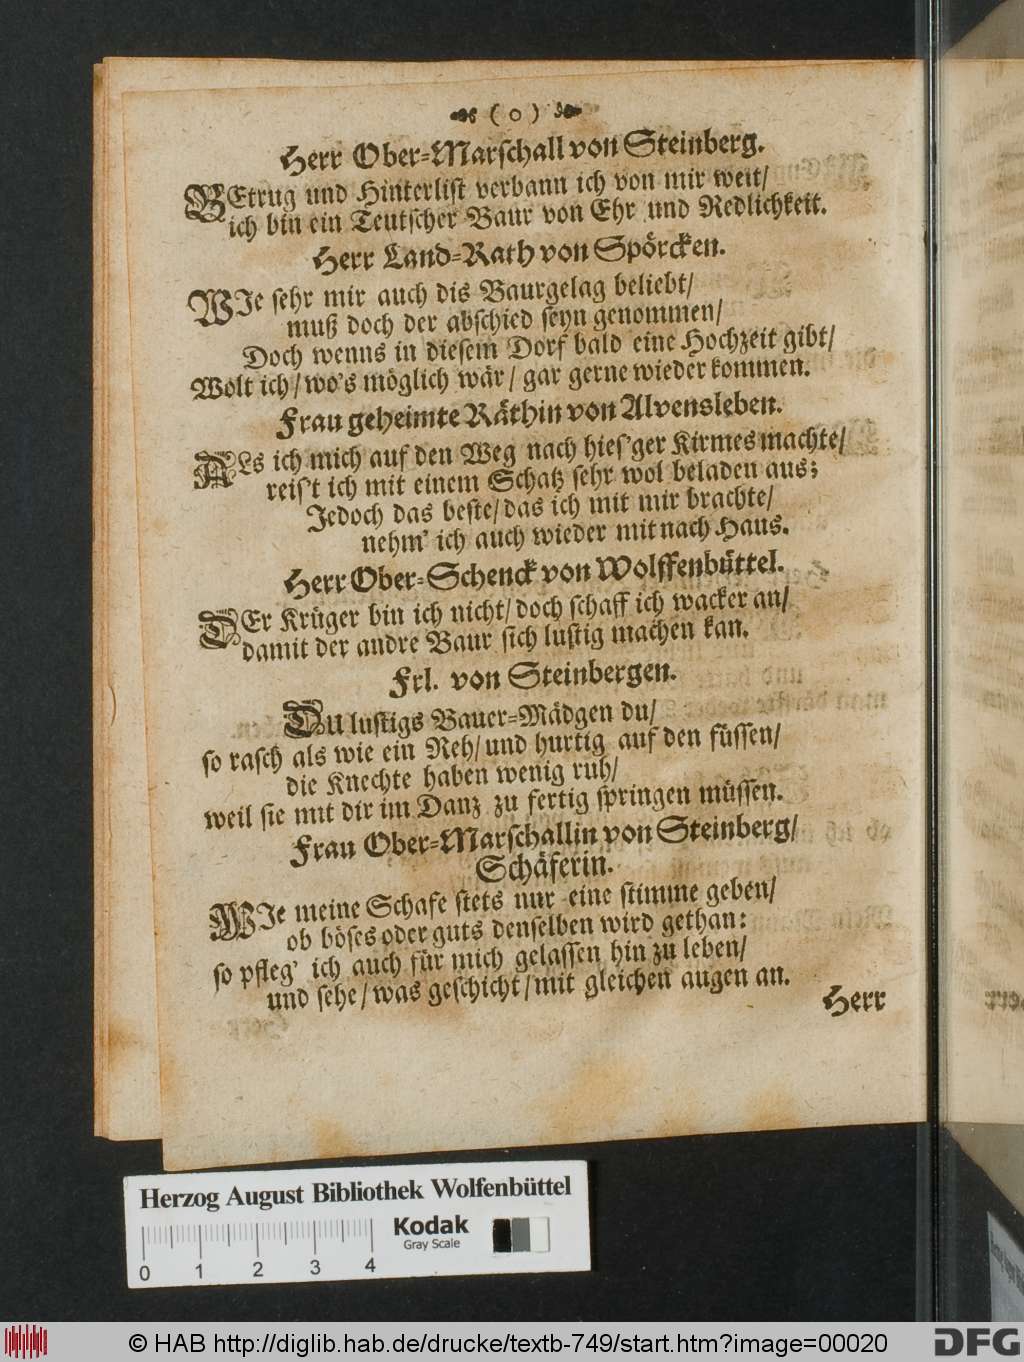 ( o )
Herr Ober=Marschall von Steinberg.
BEtrug und Hinterlist verbann ich von mir weit/
ich bin ein Teutscher Baur von Ehr und Redlichkeit.
Herr Land=Rath von Spörcken.
WIe sehr mir auch dis Baurgelag beliebt/
muß doch der abschied seyn genommen/
Doch wenns in diesem Dorf bald eine Hochzeit gibt/
Wolt ich/ wo's möglich wär/ gar gerne wieder kommen.
Frau geheimte Räthin von Alvensleben.
ALs ich mich auf den Weg nach hies'ger Kirmes machte/
reis't ich mit einem Schatz sehr wol beladen aus;
Jedoch das beste/ das ich mit mir brachte/
nehm' ich auch wieder mit nach Haus.
Herr Ober=Schenck von Wolffenbüttel.
DEr Krüger bin ich nicht/ doch schaff ich wacker an/
damit der andre Baur sich lustig machen kan.
Frl. von Steinbergen.
DU lustigs Bauer=Mädgen du/
so rasch als wie ein Reh/ und hurtig auf den füssen/
die Knechte haben wenig ruh/
weil sie mit dir im Danz zu fertig springen müssen.
Frau Ober=Marschallin von Steinberg/
Schäferin.
WIe meine Schafe stets nur eine stimme geben/
ob böses oder guts denselben wird gethan:
so pfleg' ich auch für mich gelassen hin zu leben/
und sehe/ was geschicht/ mit gleichen augen an.
Herr
Herzog August Bibliothek Wolfenbüttel
Kodak
Gray Scale
0 1 2 3 4
© HAB http://diglib.hab.de/drucke/textb-749/start.htm?image=00020
DFG